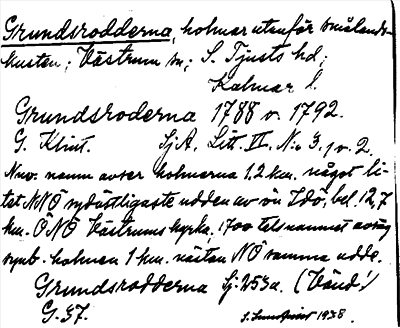 Grundsrodderna, holmar utanför smålands-
kusten; Västrum sn; S. Tjusts hd;
Kalmar l.
Grundsroderna 1788 o. 1792.
G. Klint. SjA, Litt. II, N:o 3, 1 o. 2.
Nuv. namn avser holmarna 1,2 km. något li-
tet NNÖ sydöstligaste udden av ön Idö, bel. 12,7
km. ÖNÖ Västrums kyrka, 1700 tels namnet avsåg
synb. holmen 1 km. nästan NÖ samma udde.
Grundsrodderna Sj. 253a. (Vänd!)
G. 37. 1938.